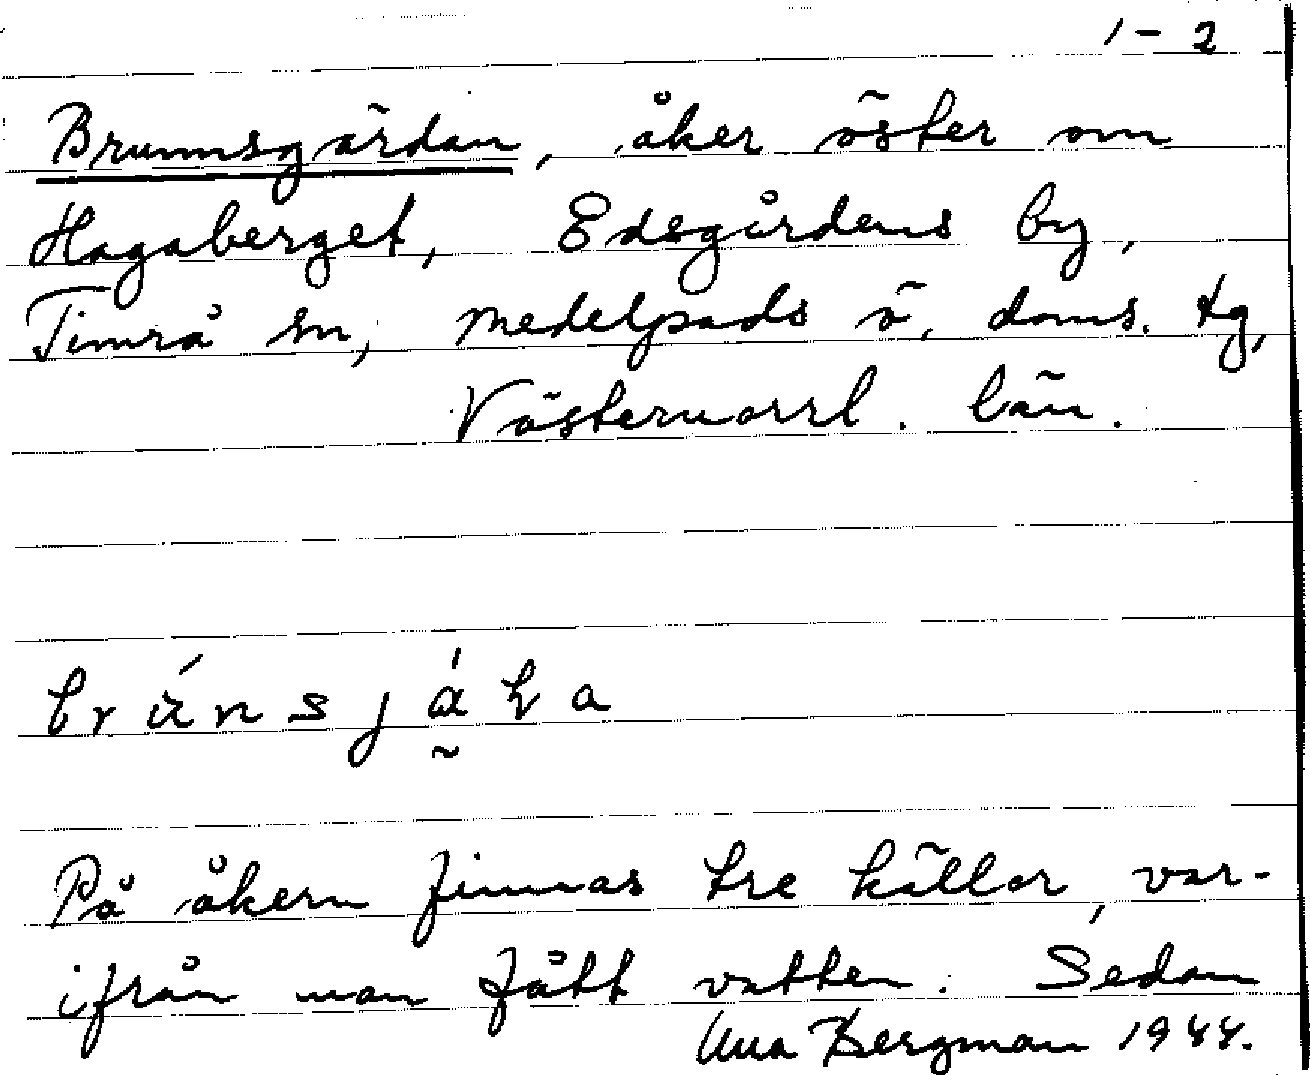 1 - 2
Brunnsgärdan, åker öster om
Hagaberget, Edsgårdens by,
Timrå sn, Medelpads ö. doms. tg,
Västernorrl. län.
På åkern finnas tre källor, var-
ifrån man fått vatten. Sedan
Una Bergman 1944.